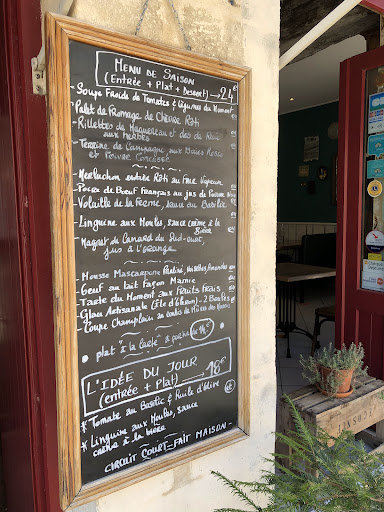 MENU DE SAISON
(Entrée + Plat + Dessert) → 24€
- Soupe Froide de Tomates & Légumes du Moment
- Palet de fromage de Chèvre Rôti
- Rillettes de Maquereau et
aux herbes
- Terrine de Campagne aux Baies Roses
et Poivre Concassé
- Merluchon entier Rôti au Four Vapeur
- Pièce de Boeuf Français au jus de
- Volaille de la Ferme, sauce au Basilic
- Linguine aux Moules, sauce crème à la
Bière
- Magret de Canard du Sud-ouest,
jus à l'orange
- Mousse Mascarpone Praliné, noisettes, Amandes
- Oeuf au lait façon Mamie
- Tarte du Moment aux Fruits frais
- Glace Artisanale (Île d'Oléron) - 2 Boules
- Coupe Champlain au coulis de Mûres
plat "à la carte" à partir de 14€
L'IDÉE DU JOUR
(entrée + Plat) 18€
* Tomate au Basilic & Huile d'Olive
* Linguine aux Moules, sauce
crème à la bière
CIRCUIT COURT - FAIT MAISON